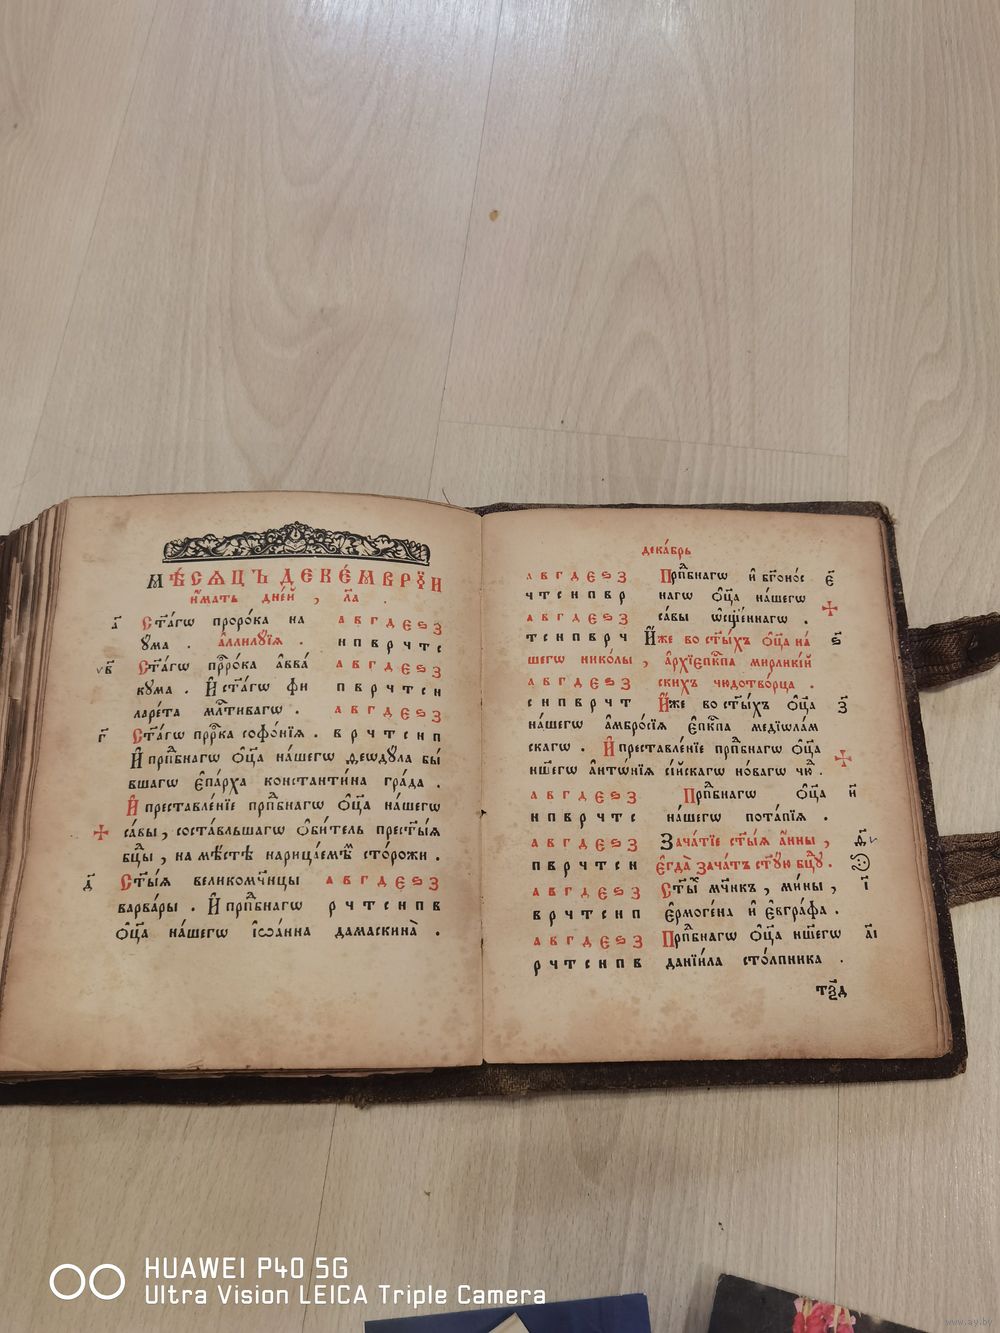 МѢСѦЦЪ ДЕКЕ́МВРЇИ
и҆́мать дне́й , л҃а .
а҃ Ст҃а́гѡ проро́ка на а в г д є ѕ з
ꙋма . а҆ллилꙋ́їѧ . н п в р ч т с
в҃ Ст҃а́гѡ прⷪ҇ро́ка а҆вва́ а в г д є ѕ з
кꙋ́ма . И҆ ст҃а́гѡ фи п в р ч т с н
ларе́та млⷭ҇тиваго . а в г д є ѕ з
г҃ Ст҃а́гѡ прⷪ҇ро́ка софо́нїѧ . в р ч т с н п
И҆ прпⷣбнагѡ ѻ҆ц҃а̀ на́шегѡ ѳеѡдꙋ́ла бы́
вшагѡ є҆па́рха константи́на гра́да .
И҆ преставле́нїе прпⷣбнагѡ ѻ҆ц҃а̀ на́шегѡ
са́вы , соста́вльшагѡ ѻ҆би́тель прест҃ы́ѧ
бц҃ы , на мѣ́стѣ нарица́емѣмъ сто́рожи .
д҃ Ст҃ы́ѧ великомч҃ницы а в г д є ѕ з
варва́ры . И҆ прпⷣбнагѡ р ч т с н п в
ѻ҆ц҃а̀ на́шегѡ і҆ѡа́нна дамаскина̀ .
дека́брь
а в г д є ѕ з Прпⷣбнагѡ и҆ бг҃оно́с є҃
ч т с н п в р нагѡ ѻ҆ц҃а̀ на́шегѡ
а в г д є ѕ з са́вы ѡ҆сщ҃е́ннагѡ .
т с н п в р ч И҆́же во ст҃ы́хъ ѻ҆ц҃а̀ на́ ѕ҃
шегѡ нико́лы , а҆рхїє҆пⷭ҇кпа мирликі́й
а в г д є ѕ з скихъ чюдотво́рца .
с н п в р ч т И҆́же во ст҃ы́хъ ѻ҆ц҃а̀ з҃
на́шегѡ а҆мбро́сїѧ є҆пⷭ҇кпа медїѡла́м
скагѡ . И҆ преставле́нїе прпⷣбнагѡ ѻ҆ц҃а̀
нш҃егѡ а҆нтѡ́нїѧ сі́йскагѡ но́вагѡ чю .
а в г д є ѕ з Прпⷣбнагѡ ѻ҆ц҃а̀ и҃
н п в р ч т с на́шегѡ пота́пїѧ .
а в г д є ѕ з Зача́тїе ст҃ы́ѧ а҆́нны , ѳ҃
п в р ч т с н є҆гда̀ зача́тъ ст҃ꙋ́ю бц҃ꙋ .
а в г д є ѕ з Ст҃ы́ мч҃нкъ , ми́ны , і҃
в р ч т с н п є҆рмоге́на и҆ є҆вгра́фа .
а в г д є ѕ з Прпⷣбнагѡ ѻ҆ц҃а̀ нш҃егѡ а҃і
р ч т с н п в данїи́ла сто́лпника .
HUAWEI P40 5G
Ultra Vision LEICA Triple Camera
www.ay.by